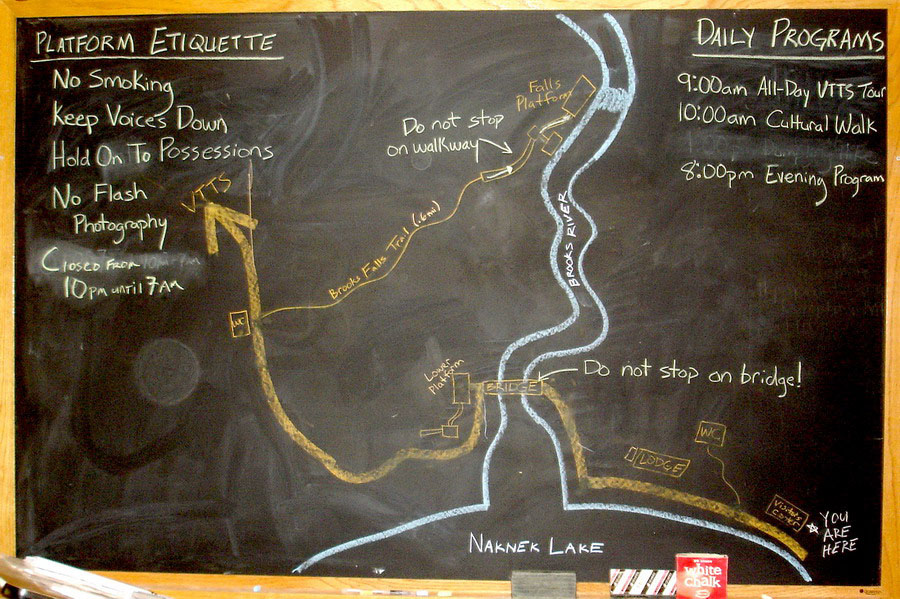 PLATFORM ETIQUETTE
No Smoking
Keep Voices Down
Hold On To Possessions
No Flash
Photography
CLOSED FROM
10PM until 7AM
DAILY PROGRAMS
9:00am All-Day VTTS Tour
10:00am Cultural Walk
8:00pm Evening Program
Falls
Platform
Do not stop
on walkway
VTTS
Brooks Falls Trail (.6mi)
BROOKS RIVER
WC
Lower
Platform
BRIDGE
Do not stop on bridge!
WC
LODGE
Visitor
Center
YOU
ARE
HERE
NAKNEK LAKE
white
chalk